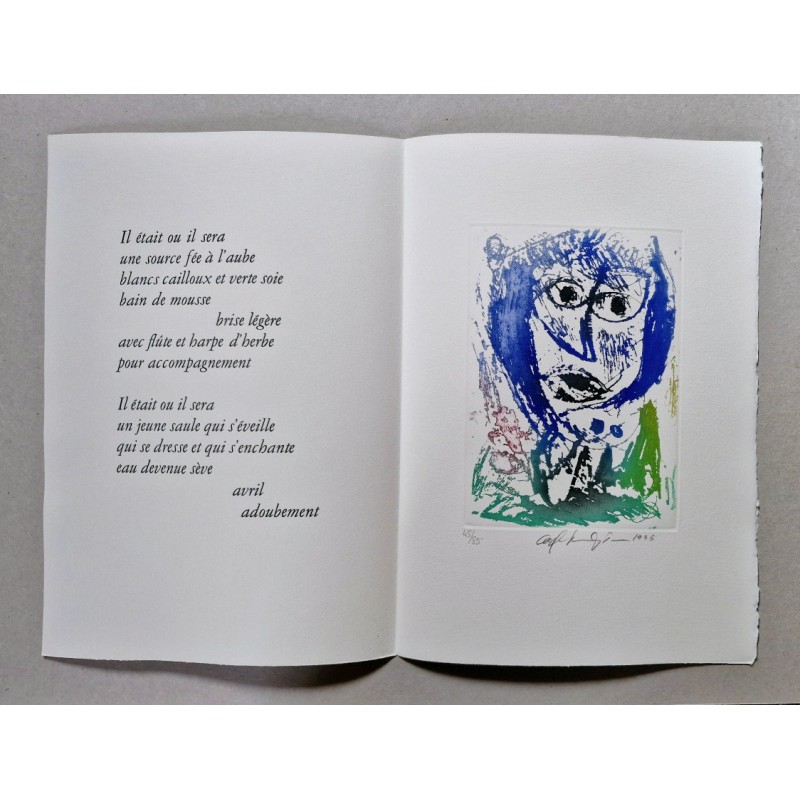 Il était ou il sera
une source fée à l'aube
blancs cailloux et verte soie
bain de mousse
brise légère
avec flûte et harpe d'herbe
pour accompagnement
Il était ou il sera
un jeune saule qui s'éveille
qui se dresse et qui s'enchante
eau devenue sève
avril
adoubement